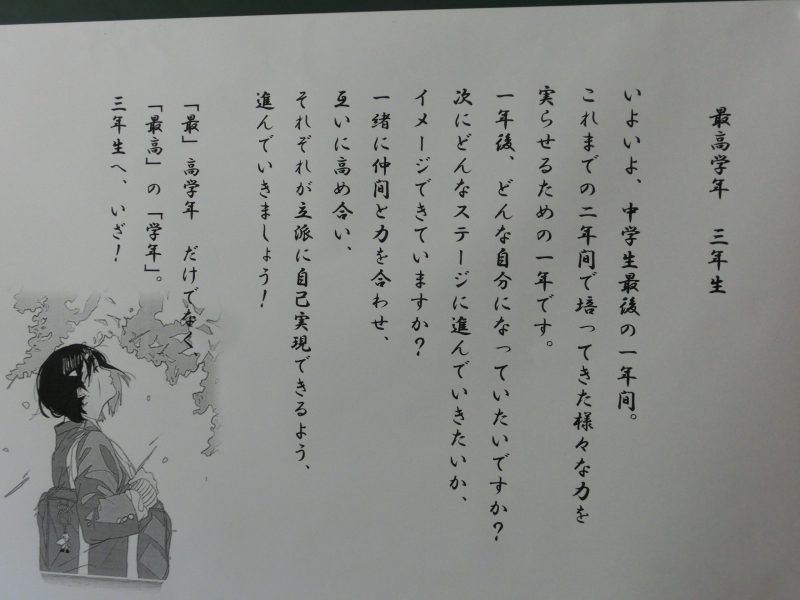 最高学年　三年生
いよいよ、中学生最後の一年間。
これまでの二年間で培ってきた様々な力を
実らせるための一年です。
一年後、どんな自分になっていたいですか？
次にどんなステージに進んでいきたいか、
イメージできていますか？
一緒に仲間と力を合わせ、
互いに高め合い、
それぞれが立派に自己実現できるよう、
進んでいきましょう！
「最」高学年　だけでなく、
「最高」の「学年」。
三年生へ、いざ！